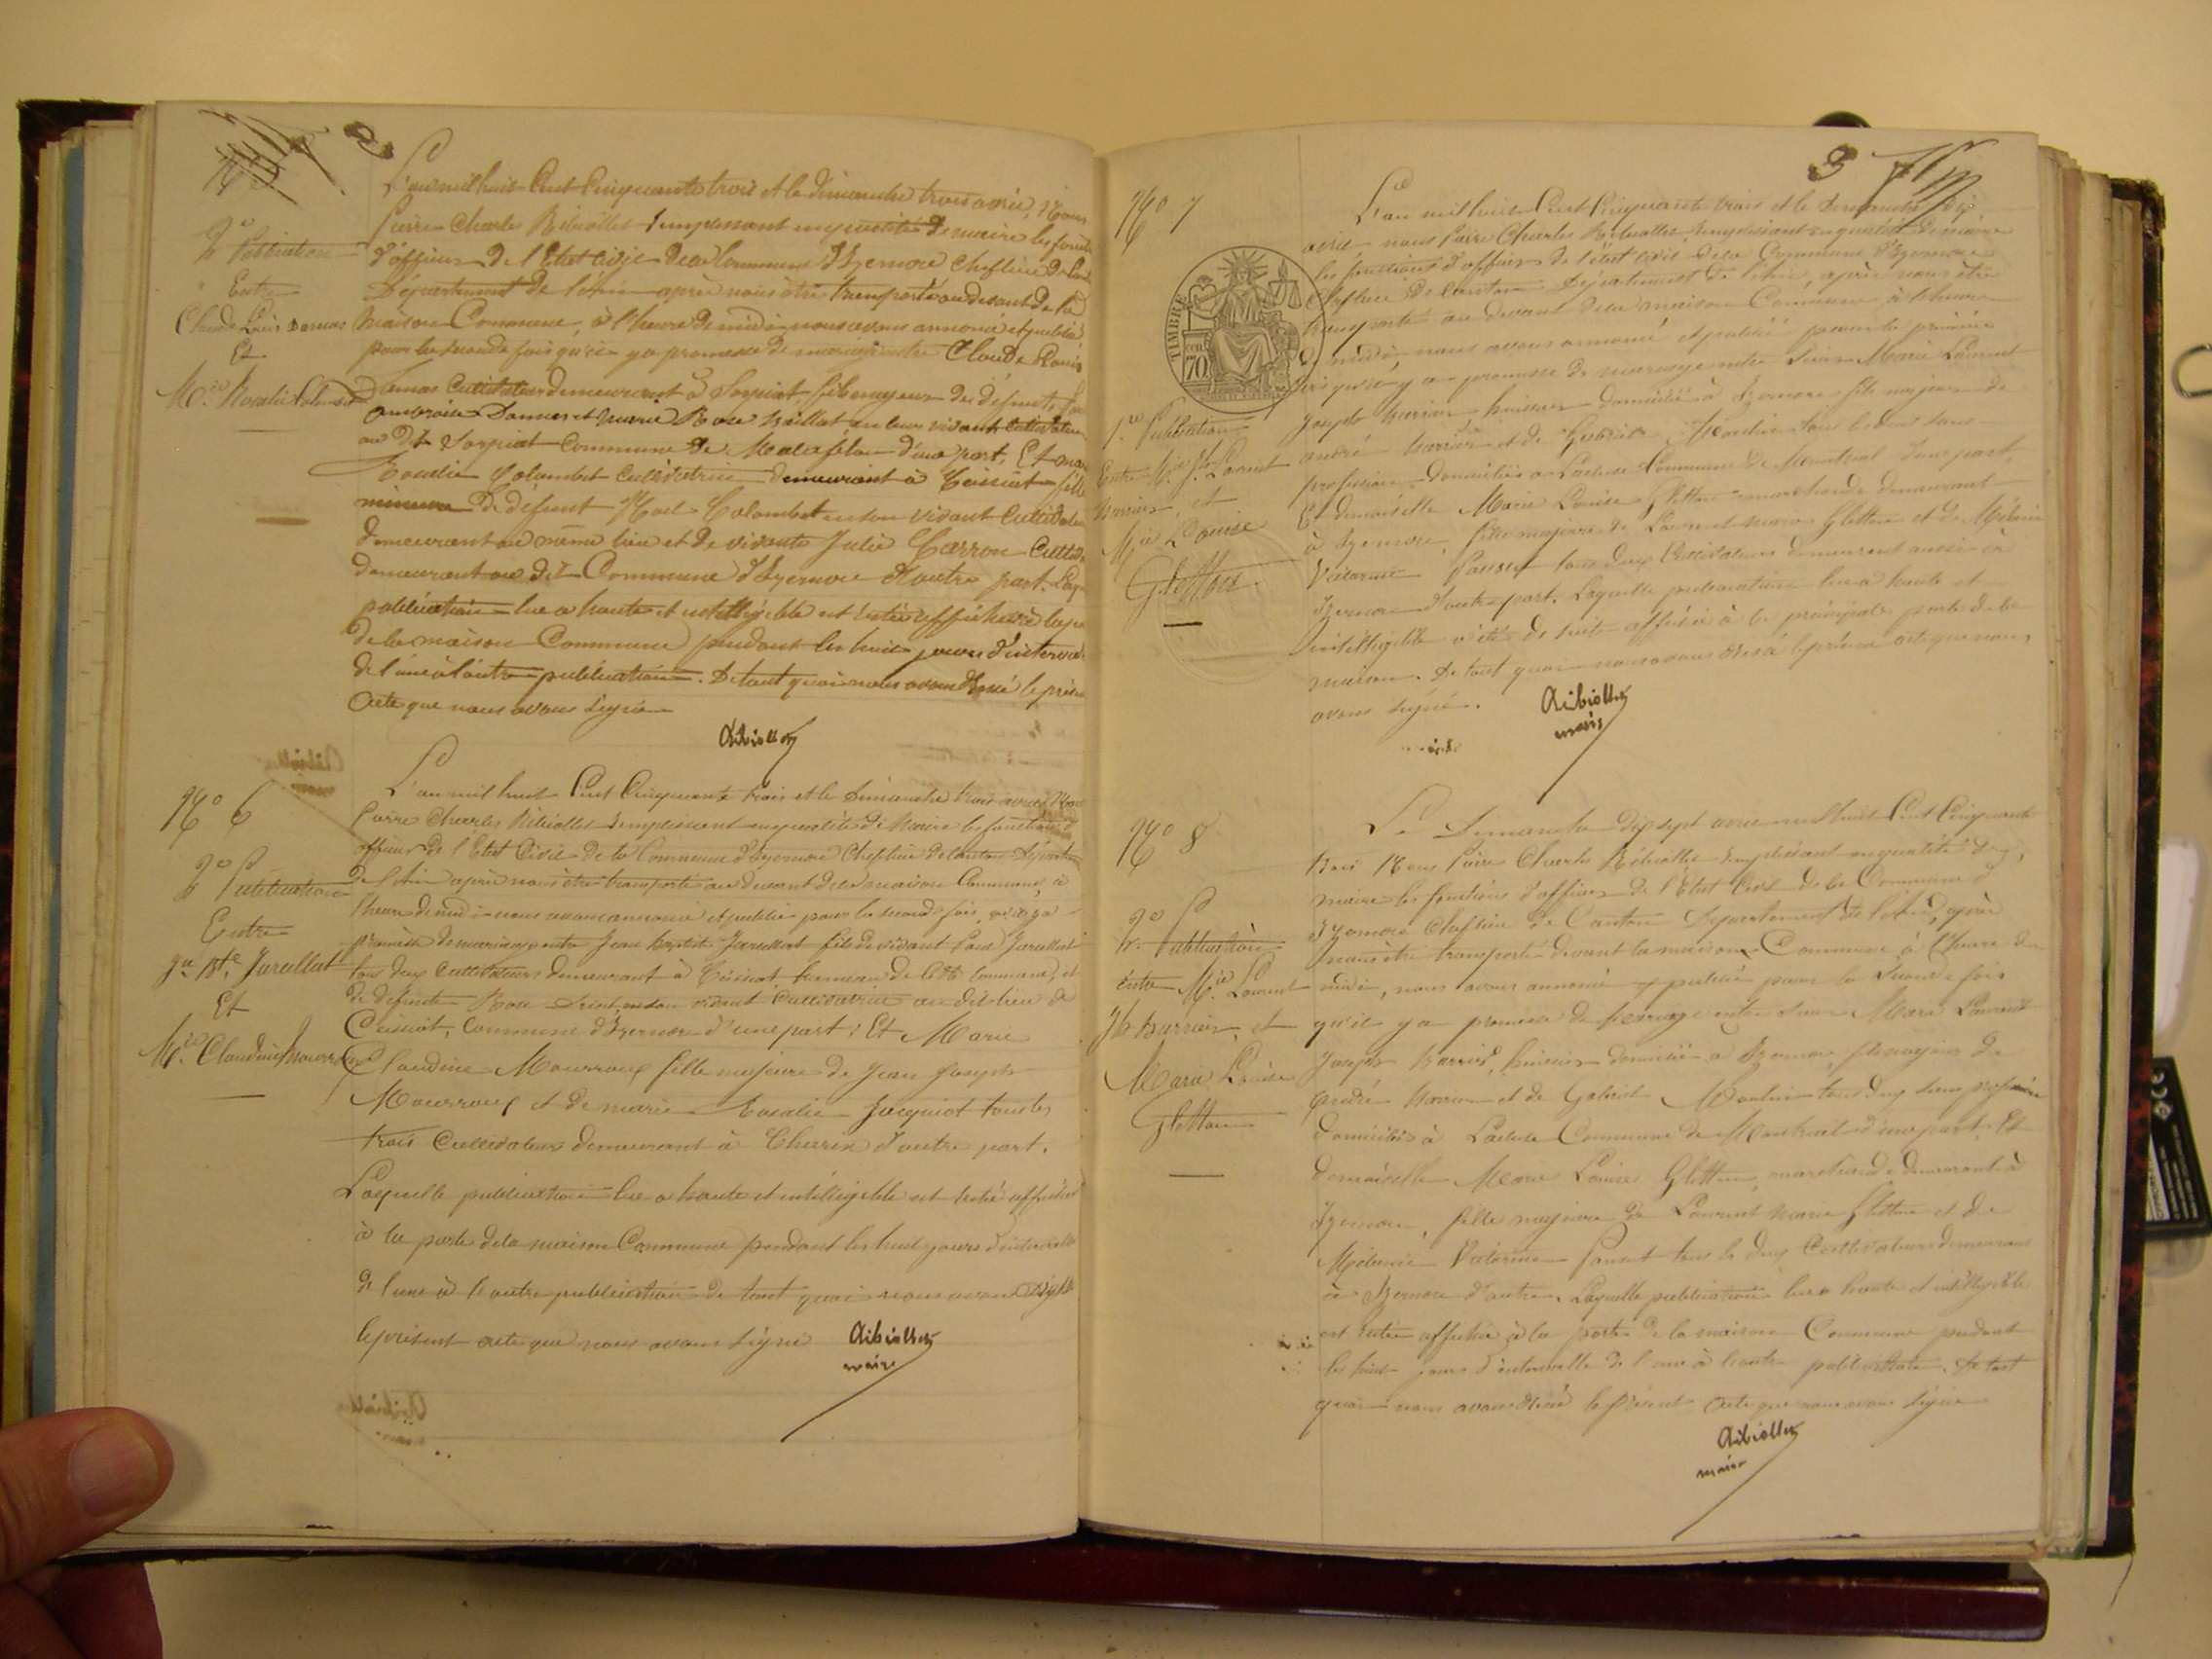 2
L'an mil huit Cent Cinquante trois et le dimanche trois avril, Nous
Pierre Charles Ribiollet remplissant en qualité de maire les fonctions
2e Publication
d'officier de l'Etat Civil de la Commune d'Izernore Cheflieu de Canton
Entre
Département de l'Ain après nous être transporté au devant de la
Claude Louis Damas
maison Commune, à l'heure de midi nous avons annoncé et publié
Et
pour la seconde fois qu'il y a promesse de mariage entre Claude Louis
Mie Rosalie Colombet
Damas Cultivateur demeurant à Sorpiat fils majeur des défunts
ambroise Damas et marie Rose Maillat en leur vivant Cultivateurs
au dit Sorpiat Commune de Matafelon d'une part, Et marie
Rosalie Colombet Cultivatrice demeurant à Ceissiat fille
mineure de défunt Colombet en son vivant Cultivateur
demeurant au même lieu et de vivante Julie Carron Cultivatrice
demeurant au dit Commune d'Izernore d'autre part. Laquelle
publication lue a haute et intelligible est restée affichée à la porte
de la maison Commune pendant les huit jours d'intervalle
de l'une à l'autre publication. De tout quoi nous avons dressé le présent
acte que nous avons signé
Ribiollet
No 6
L'an mil huit Cent Cinquante trois et le Dimanche trois avril Nous
Pierre Charles Ribiollet remplissant en qualité de Maire les fonctions d'
officier de l'Etat Civil de la Commune d'Izernore Cheflieu de Canton Département
2e Publication
de l'Ain après nous être transporté au devant de la maison Commune, à
l'heure de midi nous avons annoncé et publié pour la seconde fois, qu'il y a
Entre
promesse de mariage entre Jean Baptiste Jarullat fils de vivant Jarullat
Jn Bte Jarullat
tous deux Cultivateurs demeurant à Ceissiat hameau de cette Commune, et
Et
de défunte Rose en son vivant Cultivatrice au dit lieu de
Ceissiat, Commune d'Izernore d'une part; Et Marie
Mie Claudine Mourroux
Claudine Mourroux fille majeure de Jean Joseph
Mourroux et de marie Rosalie Jacquiot tous les
trois Cultivateurs demeurant à Charix d'autre part.
Laquelle publication lue a haute et intelligible est restée affichée
à la porte de la maison Commune pendant les huit jours d'intervalle
de l'une à l'autre publication de tout quoi nous avons
le présent acte que nous avons signé Ribiollet
maire
3
No 7
L'an mil huit Cent Cinquante trois et le Dimanche dix
avril, nous Pierre Charles Ribiollet, remplissant en qualité de maire
les fonctions d'officier de l'état civil de la Commune d'Izernore
Cheflieu de Canton Département de l'Ain, après nous être
transporté au devant de la maison Commune, à l'heure
de midi, nous avons annoncé et publié pour la première
fois qu'il y a promesse de mariage entre Sieur Marie Laurent
TIMBRE
70
1re Publication
Joseph Marrier huissier domicilié à Izernore fils majeur de
andré Marrier et de Gabriel Moulin tous les deux sans
Entre Mie Laurent
profession domiciliés a Lacluse Commune de Montréal d'une part,
Marrier, et
Et demoiselle Marie Louise Gletton marchande demeurant
Mie Louise
à Izernore, fille majeure de Laurent marie Gletton et de Mélanie
Gletton
Victorine tous deux Cultivateurs demeurant aussi à
Izernore d'autre part. Laquelle publication lue a haute et
intelligible a été de suite affichée à la principale porte de la
maison. De tout quoi nous avons dressé le présent acte que nous
avons signé.
Ribiollet
maire
No 8
Le Dimanche dix sept avril mil huit Cent Cinquante
trois Nous Pierre Charles Ribiollet remplissant en qualité de
maire les fonctions d'officier de l'Etat Civil de la Commune d'
2e Publication
Izernore Cheflieu de Canton Département de l'Ain, après
nous être transporté devant la maison Commune à l'heure de
entre Mie Laurent
midi, nous avons annoncé et publié pour la seconde fois
Jh Marrier, et
qu'il y a promesse de mariage entre Sieur Marie Laurent
Marie Louise
Joseph Marrier, huissier domicilié a Izernore, fils majeur de
Gletton
André Marrier et de Gabriel Moulin tous deux sans profession
domiciliés à Lacluse Commune de Montréal d'une part. Et
demoiselle Marie Louise Gletton, marchande demeurant à
Izernore, fille majeure de Laurent Marie Gletton et de
Mélanie Victorine tous les deux Cultivateurs demeurant
à Izernore d'autre. Laquelle publication lue a haute et intelligible
est restée affichée à la porte de la maison Commune pendant
les huit jours d'intervalle de l'une à l'autre publication. De tout
quoi nous avons dressé le présent acte que nous avons signé
Ribiollet
maire